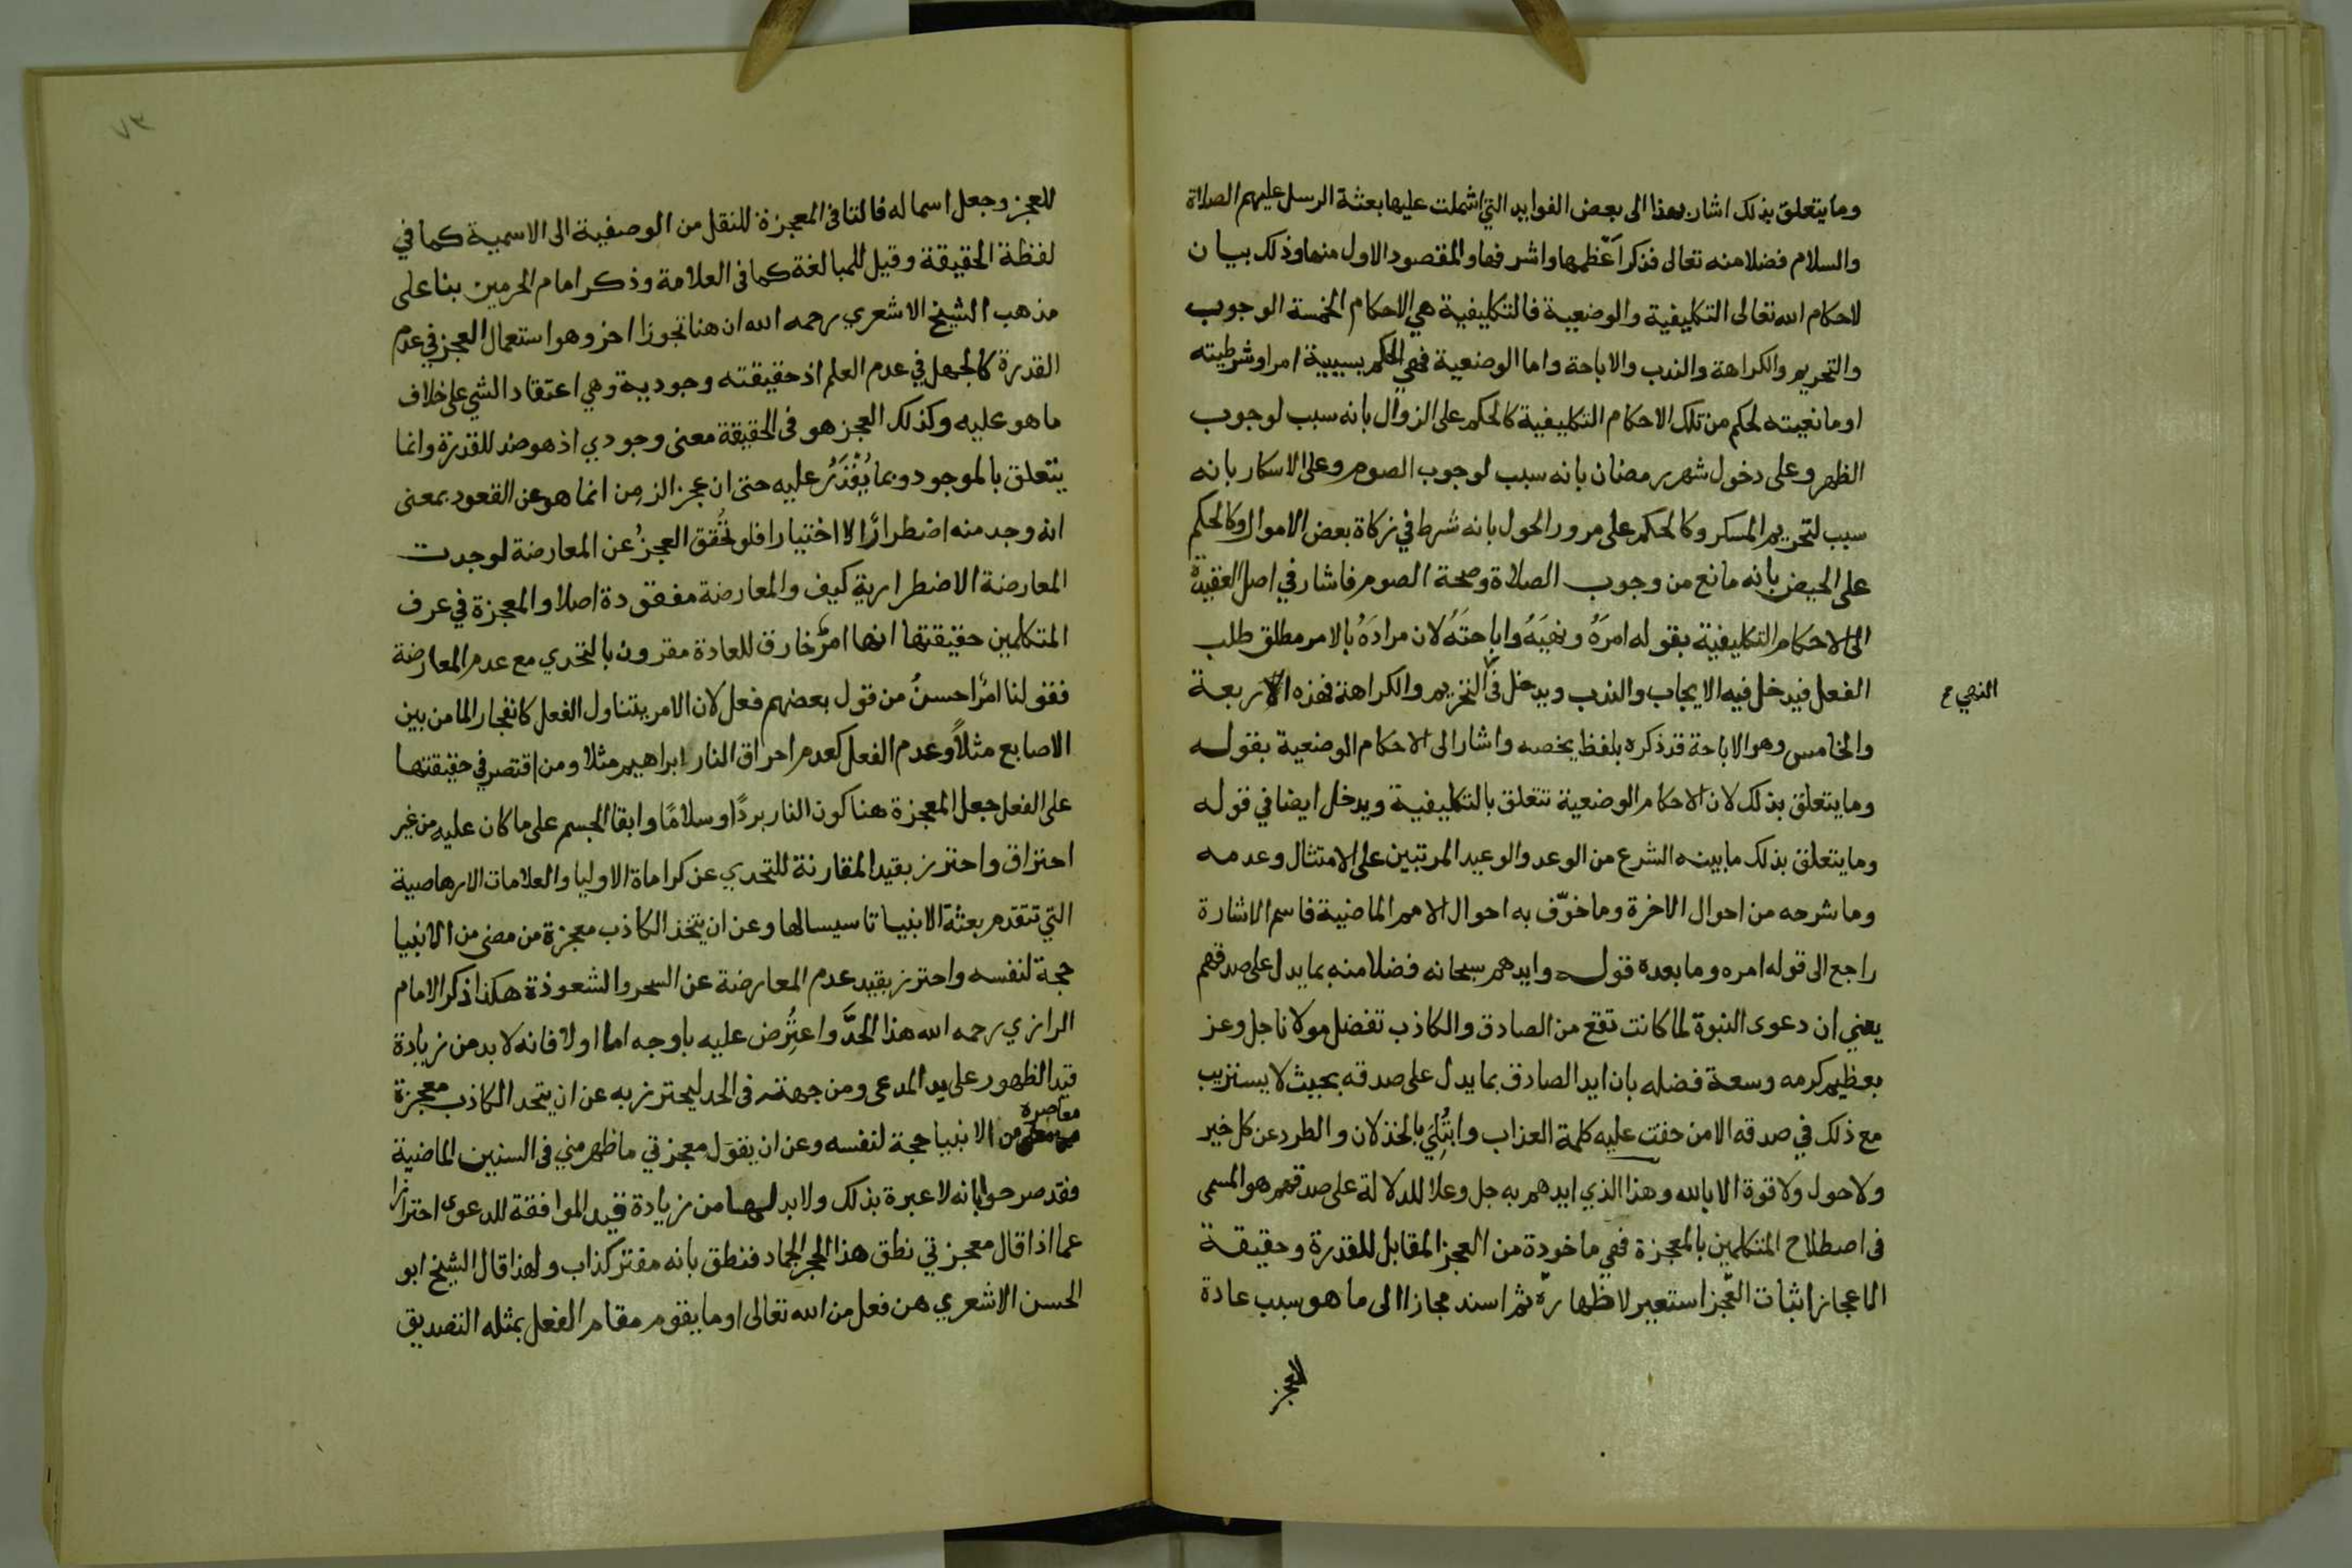 وما يتعلق بذلك اشار بهذا الى بعض الفوايد التي اشملت عليها بعثة الرسل عليهم الصلاة
والسلام فضلا منه تعالى فذكر اعّظمها واشرفها والمقصود الاول منها وذلك بيان
لاحكام الله تعالى التكليفية والوضعية فالتكليفية هي الاحكام الخمسة الوجوب
والتحريم والكراهة والندب والاباحة واما الوضعية فهي الحكم بسببية امر او شرطيته
او مانعيته لحكم من تلك الاحكام التكليفية كالحكم على الزوال بانه سبب لوجوب
الظهر وعلى دخول شهر رمضان بانه سبب لوجوب الصوم وعلى الاسكار بانه
سبب لتحريم المسكر وكالحكم على مرور الحول بانه شرط في زكاة بعض الاموال وكالحكم
على الحيض بانه مانع من وجوب الصلاة وصحة الصوم فاشار في اصل العقيدة
الى الاحكام التكليفية بقوله امرَهُ ونهيَهُ واباحتَهُ لان مرادَهُ بالامر مطلق طلب
الفعل فيدخل فيه الايجاب والندب ويدخل في التحريم والكراهة فهذه الاربعة
النهي ع
والخامس وهو الاباحة قد ذكره بلفظ يخصه واشار الى الاحكام الوضعية بقوله
وما يتعلق بذلك لان الاحكام الوضعية تتعلق بالتكليفية ويدخل ايضا في قوله
وما يتعلق بذلك ما بينه الشرع من الوعد والوعيد المرتبين على الامتثال وعدمه
وما شرحه من احوال الاخرة وما خوّف به احوال الامم الماضية فاسم الاشارة
راجع الى قوله امره وما بعده قوله وايدهم سبحانه فضلا منه بما يدل على صدقهم
يعني ان دعوى النبوة لما كانت تقع من الصادق والكاذب تفضل مولانا جل وعز
بعظيم كرمه وسعة فضله بان ايد الصادق بما يدل على صدقه بحيث لا يستريب
مع ذلك في صدقه الا من حقت عليه كلمة العذاب وابتُلِيَ بالخذلان والطرد عن كل خير
ولا حول ولا قوة الا بالله وهذا الذي ايدهم به جل وعلا للدلالة على صدقهم هو المسمى
في اصطلاح المتكلمين بالمعجزة فهي ماخوذة من العجز المقابل للقدرة وحقيقة
الاعجاز اثبات العّجز استعير لاظهارهّ ثم اسند مجازا الى ما هو سبب عادة
للعجز
٧٣
للعجز وجعل اسما له فالتا في المعجزة للنقل من الوصفية الى الاسمية كما في
لفظة الحقيقة وقيل للمبالغة كما في العلامة وذكر امام الحرمين بنا على
مذهب الشيخ الاشعري رحمه الله ان هنا تجوزا اخر وهو استعمال العجز في عدم
القدرة كالجهل في عدم العلم اذ حقيقته وجودية وهي اعتقاد الشي على خلاف
ما هو عليه وكذلك العجز هو في الحقيقة معنى وجودي اذ هو ضد للقدرة وانما
يتعلق بالموجود وبما يُقْدَرُ عليه حتى ان عجز الزمِن انما هو عن القعود بمعنى
انه وجد منه اضطرارًا لا اختيارا فلو تحُقق العجزُ عن المعارضة لوجدت
المعارضة الاضطرارية كيف والمعارضة مفقودة اصلا والمعجزة في عرف
المتكلمين حقيقتها انها امرٌ خارق للعادة مقرون بالتحدي مع عدم المعارضة
فقولنا امرٌ احسنُ من قول بعضهم فعل لان الامر يتناول الفعل كانفجار الما من بين
الاصابع مثلاً وعدم الفعل كعدم احراق النار ابراهيم مثلا ومن اقتصر في حقيقتها
على الفعل جعل المعجزة هنا كون النار بردًا وسلامًا وابقا الجسم على ما كان عليه من غير
احتراق واحترز بقيد المقارنة للتحدي عن كراماة الاوليا والعلامات الارهاصية
التي تتقدم بعثة الانبيا تاسيسا لها وعن ان يتخذ الكاذب معجزة من مضى من الانبيا
حجة لنفسه واحترز بقيد عدم المعارضة عن السحر والشعوذة هكذا ذكر الامام
الرازي رحمه الله هذا الحدَّ واعتُرِض عليه باوجه اما اولا فانه لا بد من زيادة
قيد الظهور على يد المدعى ومن جهته في الحد ليحترز به عن ان يتخد الكاذب معجزة
معاصره
من الانبيا حجة لنفسه وعن ان يقوَل معجزتي ما ظهر مني في السنين الماضية
فقد صرحوا بانه لا عبرة بذلك ولا بد لها من زيادة قيد الموافقة للدعوى احترازا
عما اذا قال معجزتي نطق هذا الحجر الجماد فنطق بانه مفتر كذاب ولهذا قال الشيخ ابو
الحسن الاشعري هن فعل من الله تعالى او ما يقوم مقام الفعل بمثله التصديق